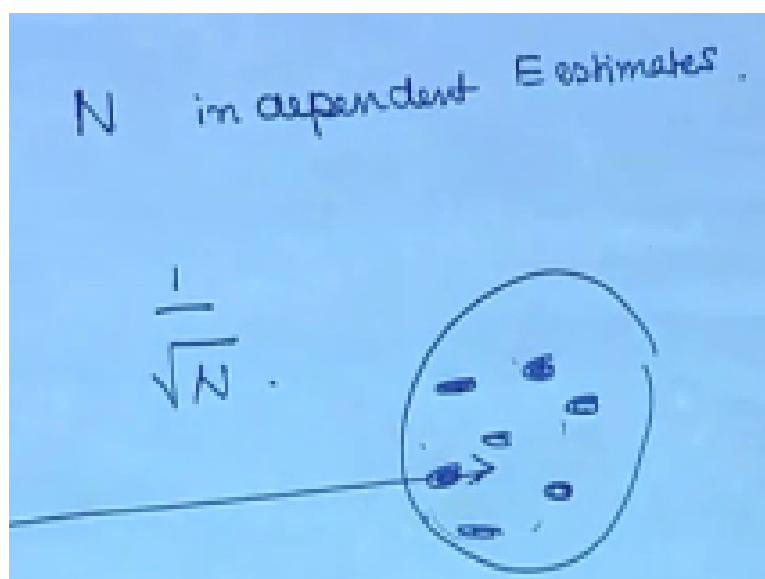 N independent E estimates.
1
√N.